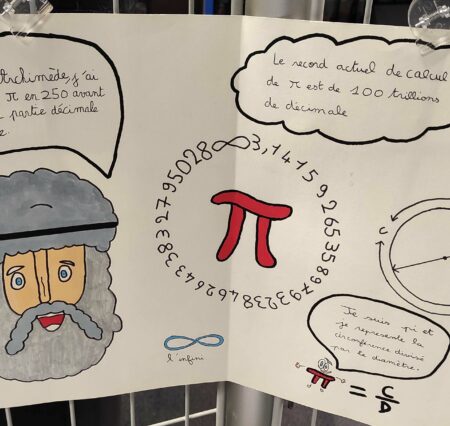 Archimède, j'ai
π en 250 avant
partie décimale
Le record actuel de calcul
de π est de 100 trillions
de décimale
3,1415926535897932384626433832795028∞
π
c
Je suis pi et
je représente la
circonférence divisé
par le diamètre.
l'infini
π = C/D